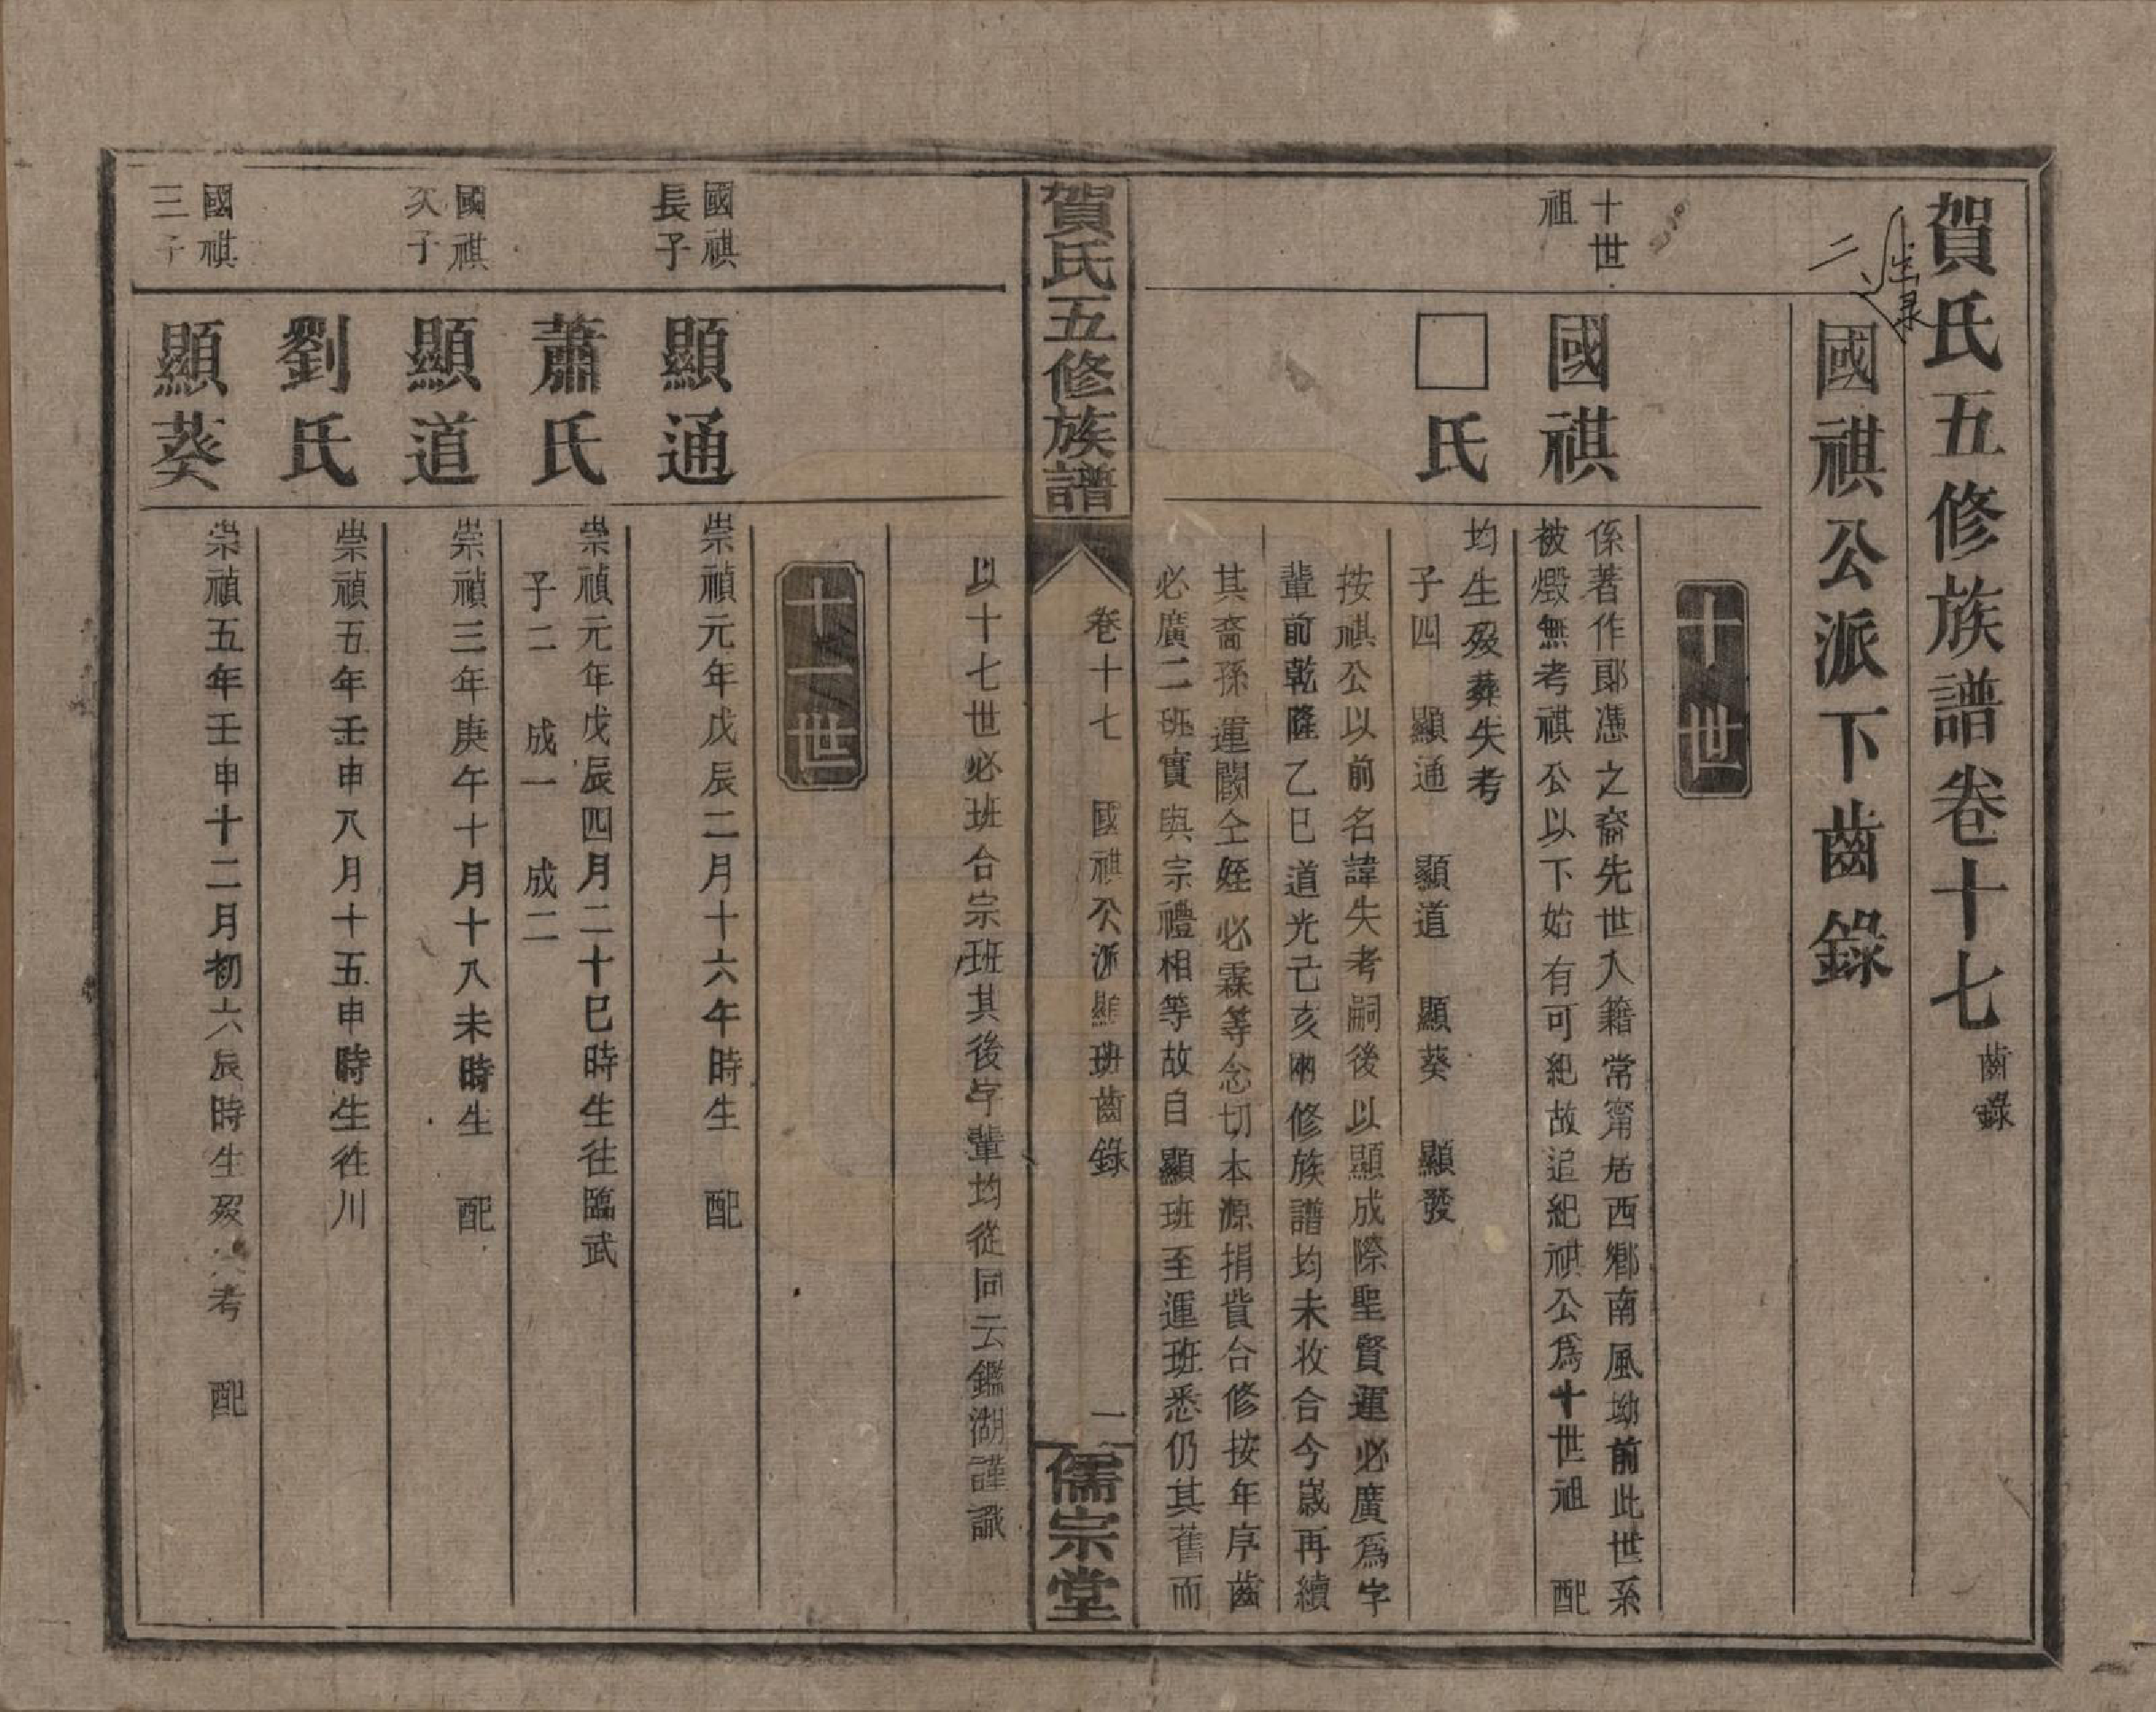 賀氏五修族譜卷十七 齒錄
國祺公派下齒錄
二
十世
十世
祖
國祺
係著作郎憑之裔先世入籍常甯居西鄉南風坳前此世系
被燬無考祺公以下始有可紀故追紀祺公爲十世祖 配
□氏
均生歿葬失考
子四 顯通 顯道 顯葵 顯發
按祺公以前名諱失考嗣後以顯成際聖賢運必廣爲字
輩前乾隆乙巳道光己亥兩修族譜均未收合今歲再續
其裔孫運閣仝姪必霖等念切本源捐貲合修按年序齒
必廣二班實與宗禮相等故自顯班至運班悉仍其舊而
賀氏五修族譜
卷十七 國祺公派顯班齒錄
一
儒宗堂
以十七世必班合宗班其後字輩均從同云鑑湖謹識
十一世
國祺
長子
顯通
崇禎元年戊辰二月十六午時生 配
蕭氏
崇禎元年戊辰四月二十巳時生往臨武
子二 成一 成二
國祺
次子
顯道
崇禎三年庚午十月十八未時生 配
劉氏
崇禎五年壬申八月十五申時生往川
國祺
三子
顯葵
崇禎五年壬申十二月初六辰時生歿失考 配